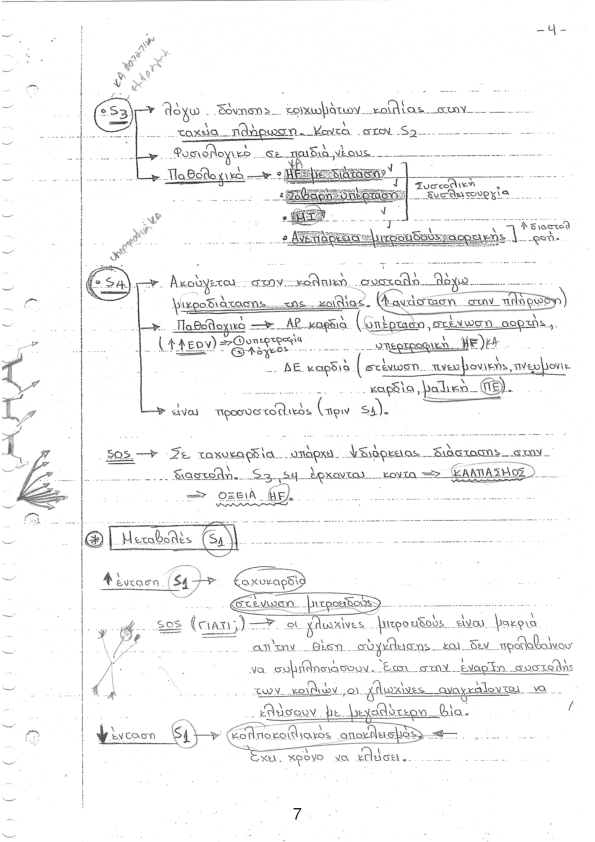 -4-
ΚΑ διατατική
επάρκεια
• S3 → λόγω δόνησης τοιχωμάτων κοιλίας στην
ταχεία πλήρωση. Κοντά στον S2
→ Φυσιολογικό σε παιδιά, νέους
ΚΑ
→ Παθολογικό → • HF με διάταση
• Σοβαρή υπέρταση
• ΜΙ
Συστολική
δυσλειτουργία
• Ανεπάρκεια μιτροειδούς, αορτικής ] ↑ διαστολ
ροή.
υπερτροφική ΚΑ
• S4 → Ακούγεται στην κολπική συστολή λόγω
μικροδιάτασης της κοιλίας. (↑ αντίσταση στην πλήρωση)
→ Παθολογικό → ΑΡ καρδία (υπέρταση, στένωση αορτής,
(↑↑EDV) ⇒ ① υπερτροφία
② ↑ όγκος
υπερτροφική HF) ΚΑ
ΔΕ καρδιά (στένωση πνευμονικής, πνευμονικ
καρδία, μαζική ΠΕ).
→ είναι προσυστολικός (πριν S1).
SOS → Σε ταχυκαρδία υπάρχει ↓ διάρκειας διάστασης στην
διαστολή. S3, S4 έρχονται κοντα ⇒ ΚΑΛΠΑΣΜΟΣ
⇒ ΟΞΕΙΑ HF.
* Μεταβολές S1
↑ ένταση S1 → ταχυκαρδία
στένωση μιτροειδούς
SOS (ΓΙΑΤΙ;) → οι γλωχίνες μιτροειδούς είναι μακριά
απ'την θέση σύγκλεισης και δεν προλαβαίνου
να συμπλησιάσουν. Έτσι στην έναρξη συστολής
των κοιλιών, οι γλωχίνες αναγκάζονται να
κλείσουν με μεγαλύτερη βία.
↓ ένταση S1 → κολποκοιλιακός αποκλεισμός ←
Έχει χρόνο να κλείσει.
7